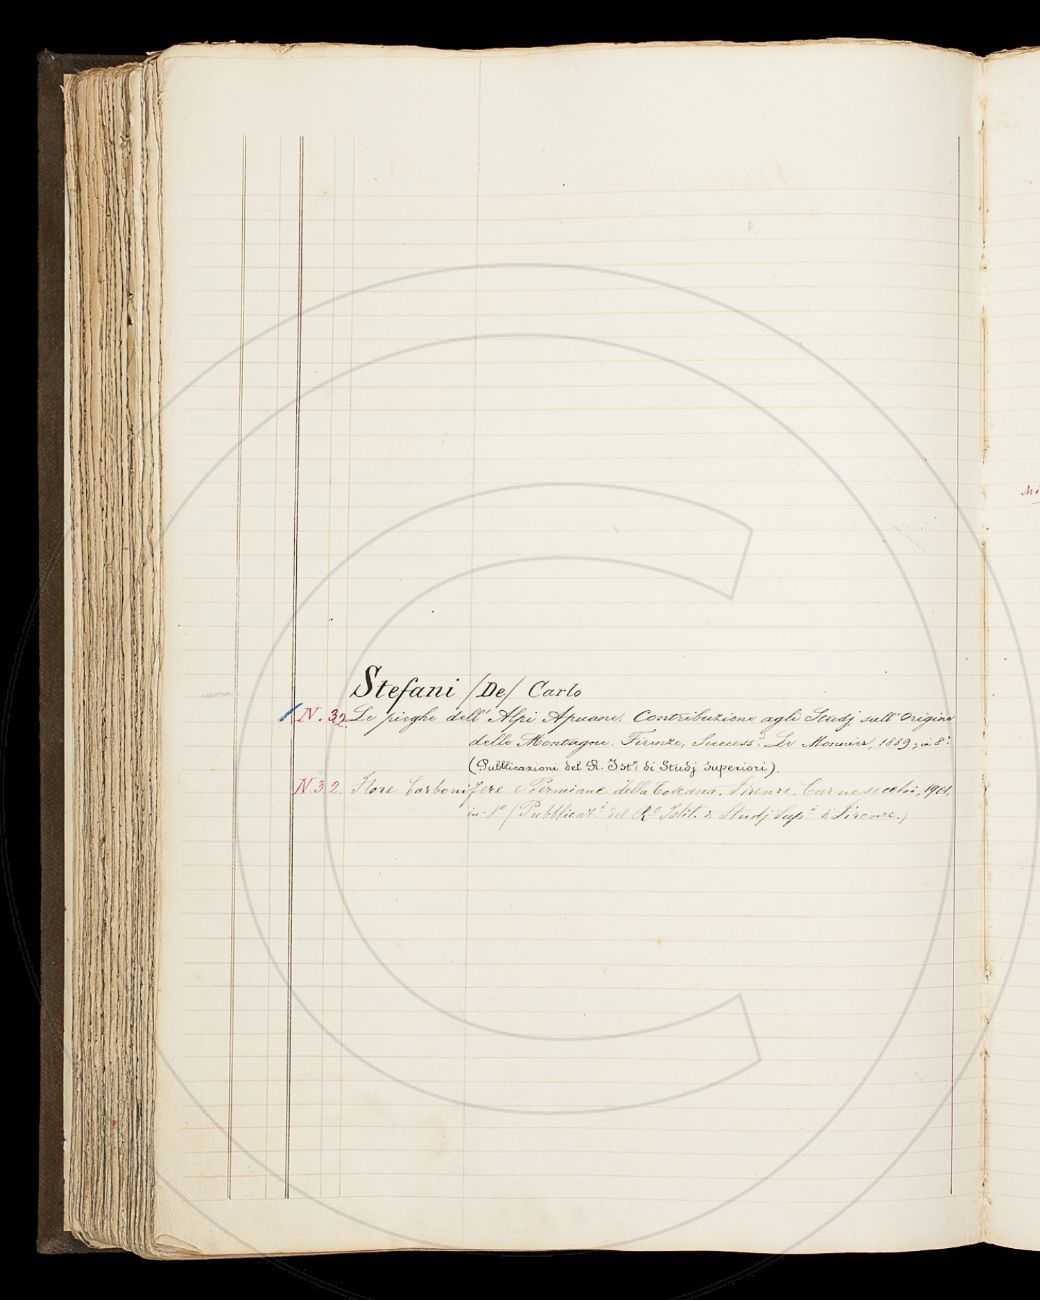 Stefani /De/ Carlo
N. 32 Le pieghe dell' Alpi Apuane. Contribuzione agli Studj sull'Origine
delle Montagne. Firenze, Success.i Le Monnier, 1889; in 8.o
(Pubblicazioni del R. Ist.o di Studj Superiori).
N. 32. Flore Carbonifere e Permiane della Toscana. Firenze, Carnesecchi, 1901,
in-8o (Pubblicaz.i del R.o Istit. di Studj Sup.i di Firenze.)